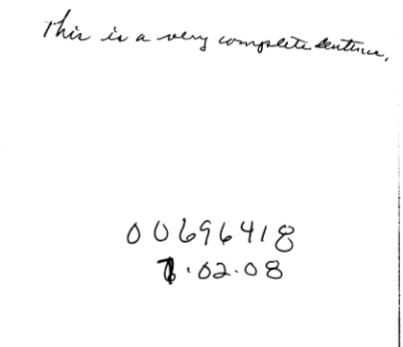 This is a very complete sentence.
00696418
1.02.08